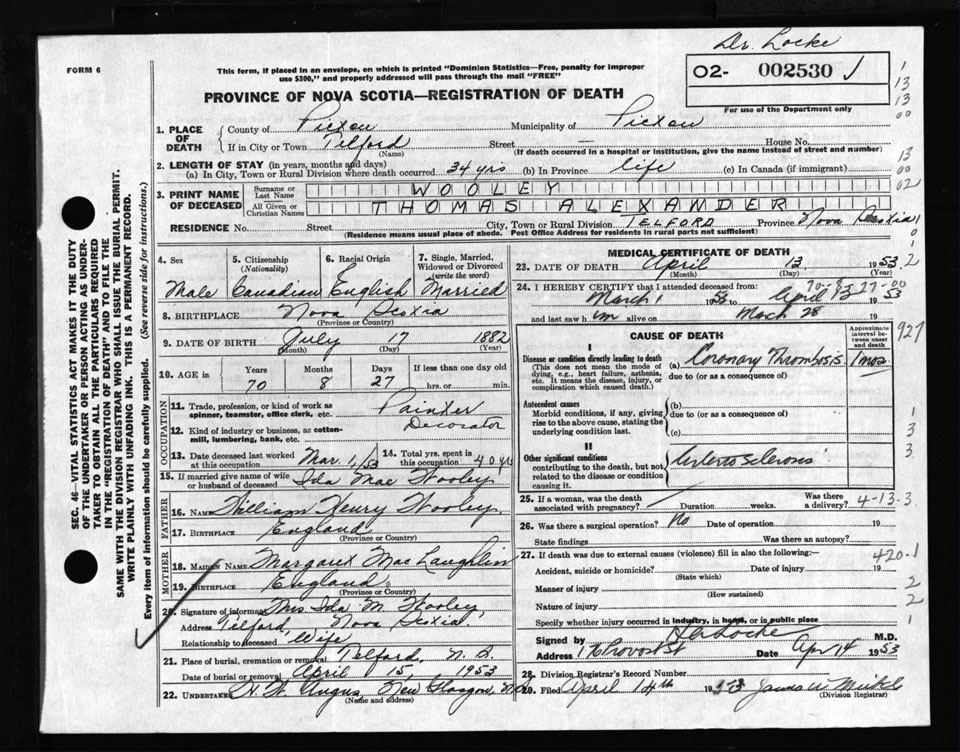 Dr. Locke
FORM 6
This form, if placed in an envelope, on which is printed "Dominion Statistics—Free, penalty for improper
use $300," and properly addressed will pass through the mail "FREE"
PROVINCE OF NOVA SCOTIA—REGISTRATION OF DEATH
02- 002530
For use of the Department only
1. PLACE OF DEATH
County of Pictou Municipality of Pictou
If in City or Town Telford Street — House No.
(Name) (If death occurred in a hospital or institution, give the name instead of street and number)
2. LENGTH OF STAY (in years, months and days)
(a) In City, Town or Rural Division where death occurred 34 yrs (b) In Province life (c) In Canada (if immigrant)
3. PRINT NAME OF DECEASED
Surname or Last Name WOOLEY
All Given or Christian Names THOMAS ALEXANDER
RESIDENCE No. Street City, Town or Rural Division TELFORD Province Nova Scotia
(Residence means usual place of abode. Post Office Address for residents in rural parts not sufficient)
SEC. 46—VITAL STATISTICS ACT MAKES IT THE DUTY
OF THE UNDERTAKER OR PERSON ACTING AS UNDER-
TAKER TO OBTAIN ALL THE PARTICULARS REQUIRED
IN THE "REGISTRATION OF DEATH" AND TO FILE THE
SAME WITH THE DIVISION REGISTRAR WHO SHALL ISSUE THE BURIAL PERMIT.
WRITE PLAINLY WITH UNFADING INK. THIS IS A PERMANENT RECORD.
Every item of information should be carefully supplied. (See reverse side for instructions.)
4. Sex 5. Citizenship (Nationality) 6. Racial Origin 7. Single, Married, Widowed or Divorced (write the word)
Male Canadian English Married
8. BIRTHPLACE Nova Scotia
(Province or Country)
9. DATE OF BIRTH July 17 1882
(Month) (Day) (Year)
10. AGE in Years Months Days If less than one day old
70 8 27 hrs. or min.
OCCUPATION
11. Trade, profession, or kind of work as spinner, teamster, office clerk, etc. Painter
12. Kind of industry or business, as cotton-mill, lumbering, bank, etc. Decorator
13. Date deceased last worked at this occupation Mar 1/53 14. Total yrs. spent in this occupation 40 yrs
15. If married give name of wife or husband of deceased Ida Mae Wooley
FATHER
16. Name William Henry Wooley
17. Birthplace England
(Province or Country)
MOTHER
18. Maiden Name Margaret MacLaughlin
19. Birthplace England
(Province or Country)
20. Signature of informant Mrs. Ida M. Wooley
Address Telford, Nova Scotia
Relationship to deceased Wife
21. Place of burial, cremation or removal Telford, N.S.
Date of burial or removal April 15, 1953
22. Undertaker Angus, New Glasgow
(Name and address)
MEDICAL CERTIFICATE OF DEATH
23. DATE OF DEATH April 13 1953
(Month) (Day) (Year)
24. I HEREBY CERTIFY that I attended deceased from:
March 1 1953 to April 13 1953
and last saw him alive on March 28 19
CAUSE OF DEATH
Approximate interval between onset and death
I
Disease or condition directly leading to death (a) Coronary Thrombosis 1 mos
(This does not mean the mode of dying, e.g., heart failure, asthenia, etc. It means the disease, injury, or complication which caused death.)
due to (or as a consequence of)
Antecedent causes (b)
Morbid conditions, if any, giving rise to the above cause, stating the underlying condition last.
due to (or as a consequence of)
(c)
II
Other significant conditions
contributing to the death, but not related to the disease or condition causing it.
25. If a woman, was the death associated with pregnancy? Duration weeks. Was there a delivery?
4-13-3
26. Was there a surgical operation? No Date of operation 19
State findings Was there an autopsy?
27. If death was due to external causes (violence) fill in also the following:—
420.1
Accident, suicide or homicide? Date of injury 19
(State which)
Manner of injury
(How sustained)
Nature of injury
Specify whether injury occurred in industry, in home, or in public place
Signed by Locke M.D.
Address Provost St Date Apr 14 1953
28. Division Registrar's Record Number
29. Filed April 14th 1953
(Division Registrar)
927